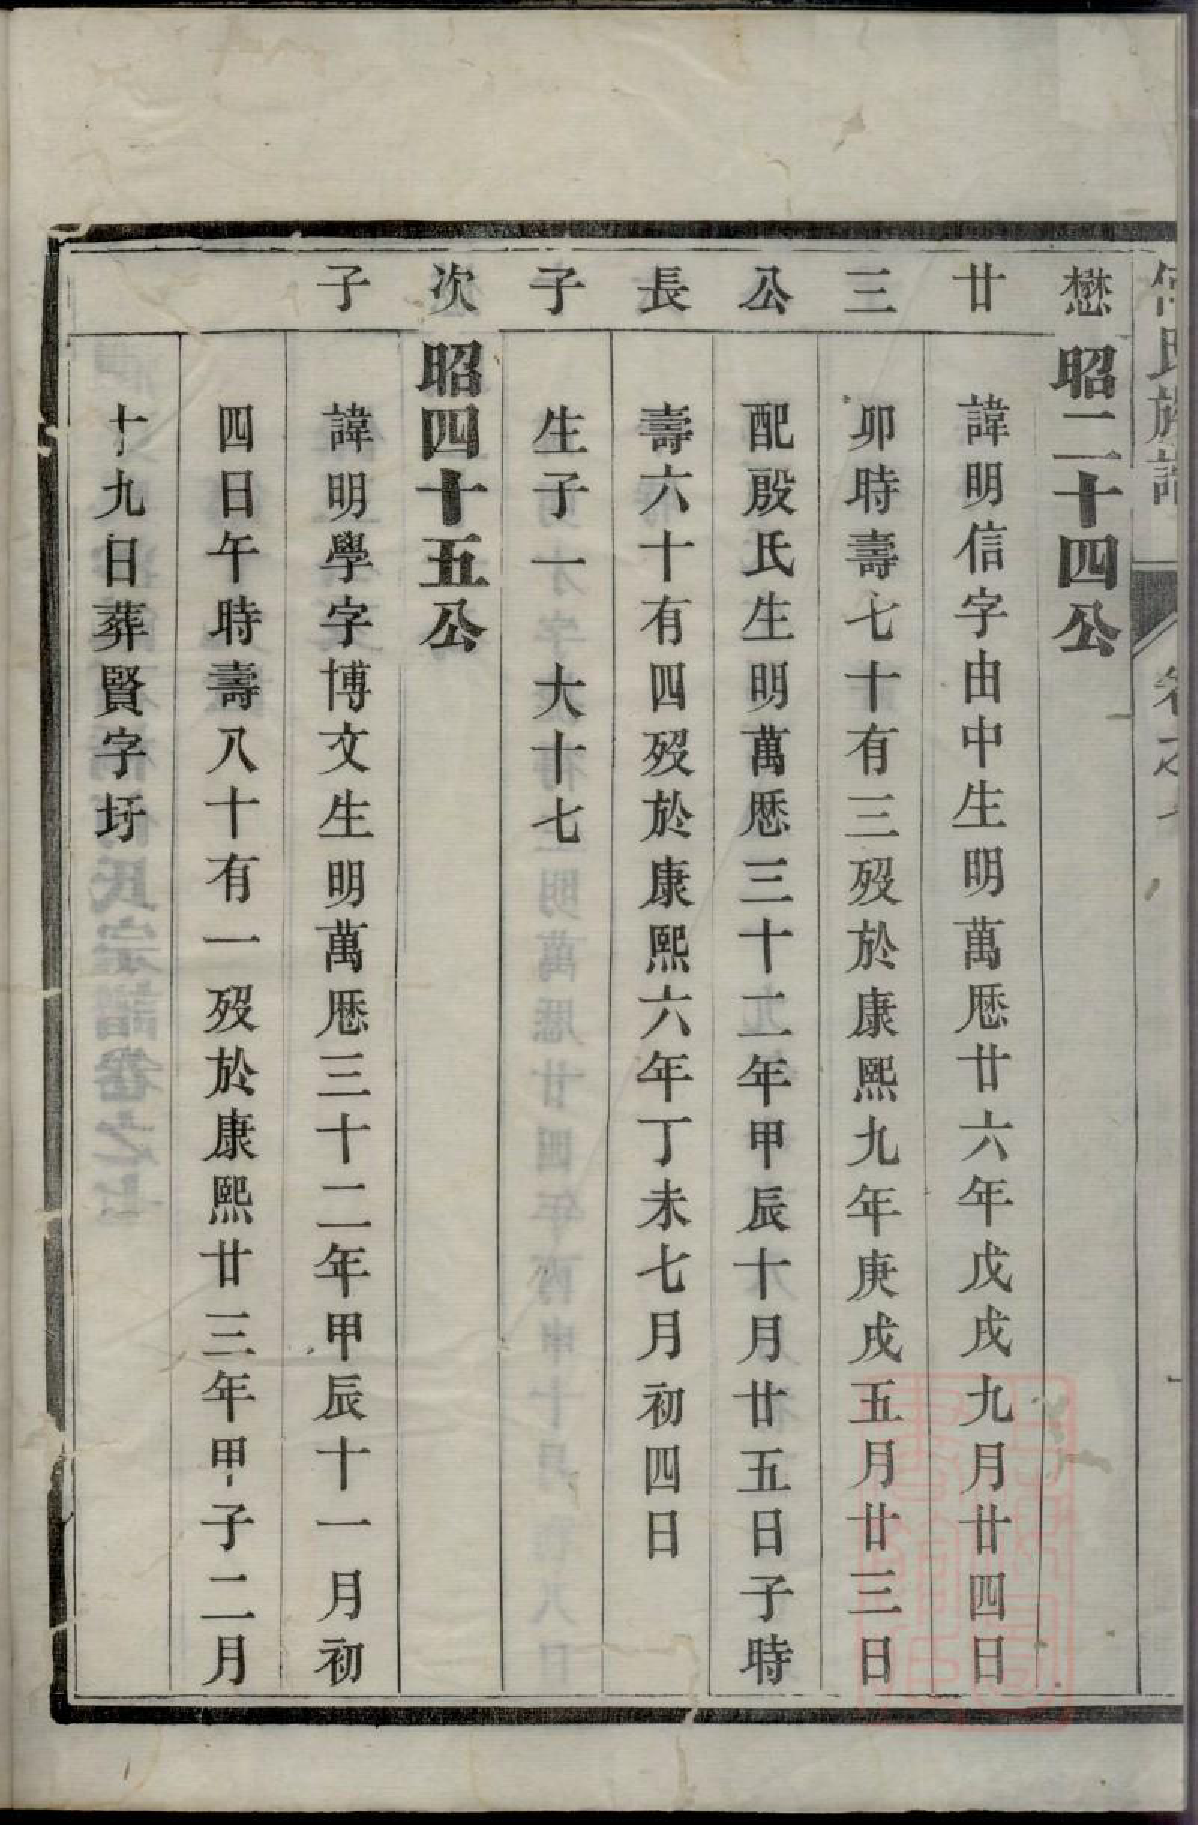 氏族譜
卷之七
懋廿三公長子
昭二十四公
諱明信字由中生明萬厯廿六年戊戌九月廿四日
卯時壽七十有三歿於康熙九年庚戌五月廿三日
配殷氏生明萬厯三十二年甲辰十月廿五日子時
壽六十有四歿於康熙六年丁未七月初四日
生子一 大十七
次子
昭四十五公
諱明學字博文生明萬厯三十二年甲辰十一月初
四日午時壽八十有一歿於康熙廿三年甲子二月
十九日葬賢字圩